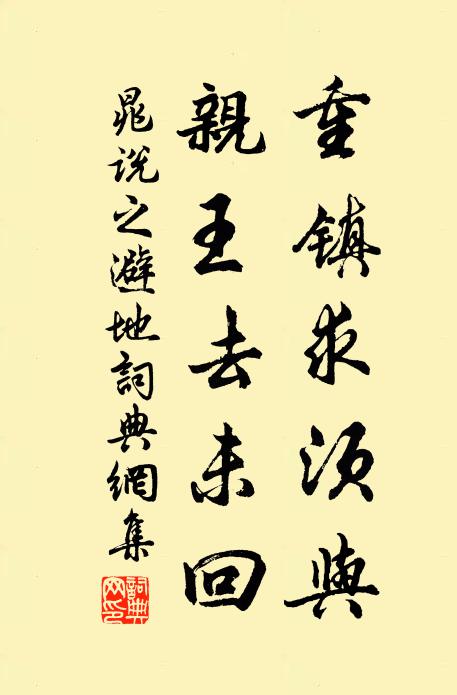 重鎮求須與
親王去未回
晁說之避地詞典網集
詞典網印